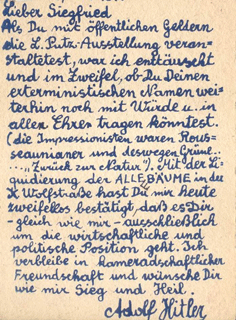 Lieber Siegfried
Als Du mit öffentlichen Geldern
die L. Putz-Ausstellung veran-
staltetest, war ich enttäuscht
und im Zweifel, ob Du Deinen
exterministischen Namen wei-
terhin noch mit Würde u. in
allen Ehren tragen könntest.
(die Impressionisten waren Rous-
seaunianer und deswegen Grüne..
..„Zurück zur Natur“). Mit der Li-
quidierung der ALLEBÄUME in der
K. Wolfstraße hast Du mir heute
zweifellos bestätigt, daß es Dir
-gleich wie mir- ausschließlich
um die wirtschaftliche und
politische Position geht. Ich
verbleibe in kameradschaftlicher
Freundschaft und wünsche Dir
wie mir Sieg und Heil.
Adolf Hitler